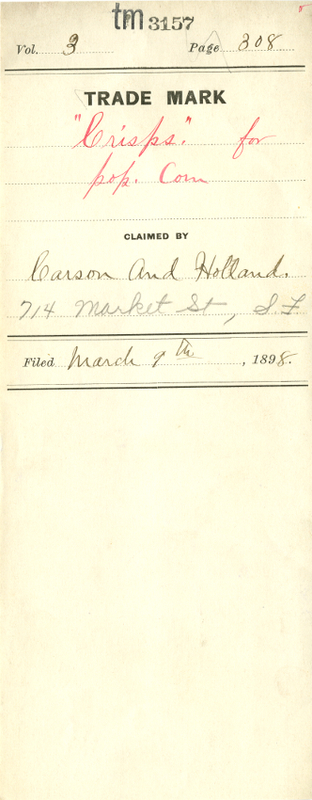 tm 3157
Vol. 3 Page 308
TRADE MARK
"Crisps." for
pop. Corn
CLAIMED BY
Carson And Holland.
714 Market St, S.F.
Filed March 9th, 1898.